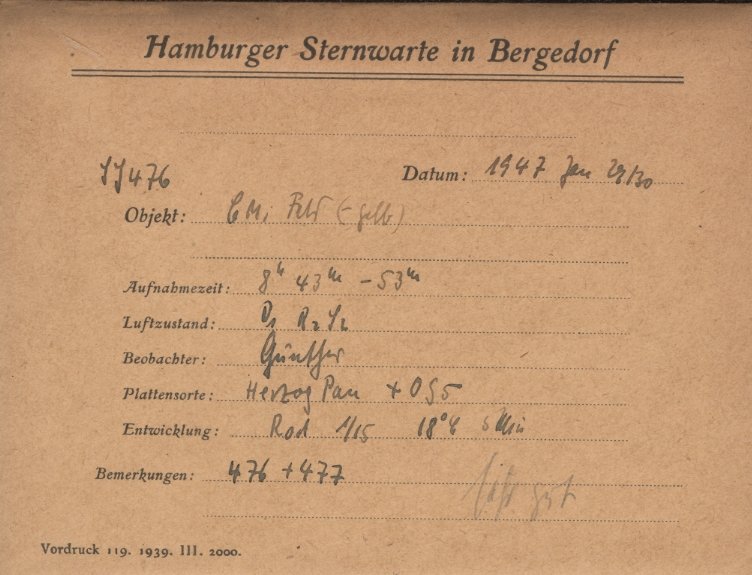 Hamburger Sternwarte in Bergedorf
476
Datum: 1947 Jan 29/30
Objekt: (- gelb)
Aufnahmezeit: 8h 43m - 53m
Luftzustand: R2 S2
Beobachter: Günther
Plattensorte: Herzog Pan + OG5
Entwicklung: Rod 1/15 18°C 5 Min
Bemerkungen: 476 + 477
sehr gut
Vordruck 119. 1939. III. 2000.